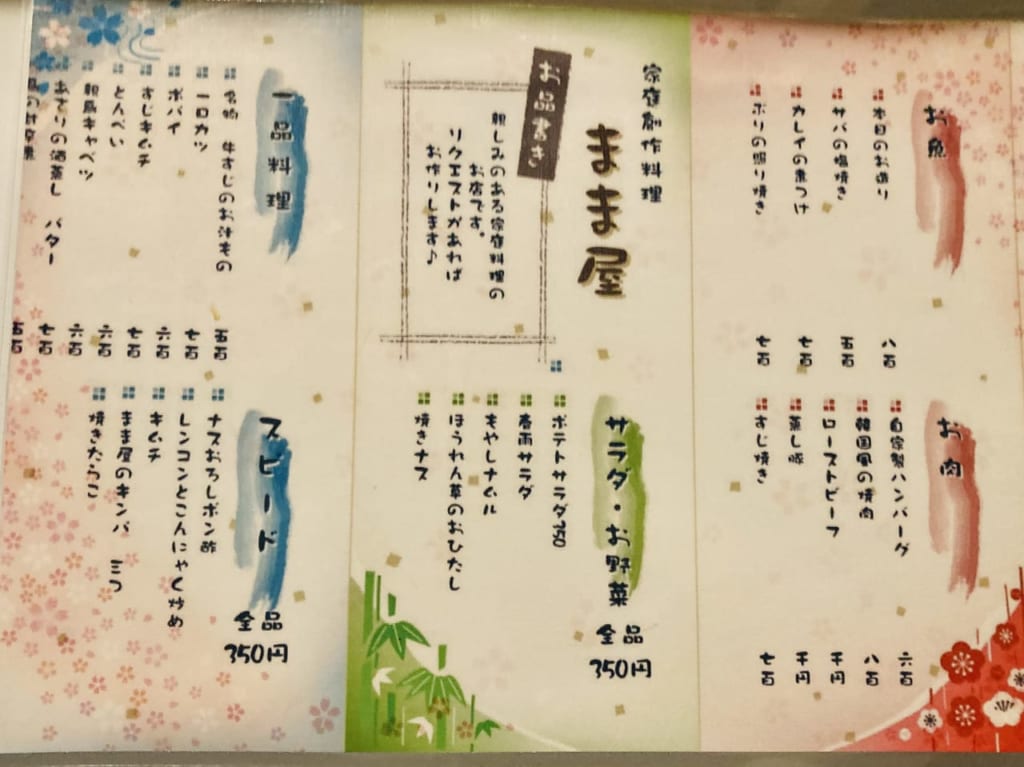 お魚
本日のお造り 八百
サバの塩焼き 五百
カレイの煮つけ 七百
ブリの照り焼き 七百
お肉
自家製ハンバーグ 六百
韓国風の焼肉 八百
ローストビーフ 千円
蒸し豚 千円
すじ焼き 七百
家庭創作料理
まま屋
お品書き
親しみのある家庭料理の
お店です。
リクエストがあれば
お作りします♪
サラダ・お野菜 全品350円
ポテトサラダ250
春雨サラダ
もやしナムル
ほうれん草のおひたし
焼きナス
一品料理
名物 牛すじのお汁もの 五百
一口カツ 七百
ポパイ 六百
すじキムチ 七百
とんぺい 六百
親鳥キャベツ 六百
あさりの酒蒸し バター 七百
五百
スピード 全品350円
ナスおろしポン酢
レンコンとこんにゃく炒め
キムチ
まま屋のキンパ 三つ
焼きたらこ